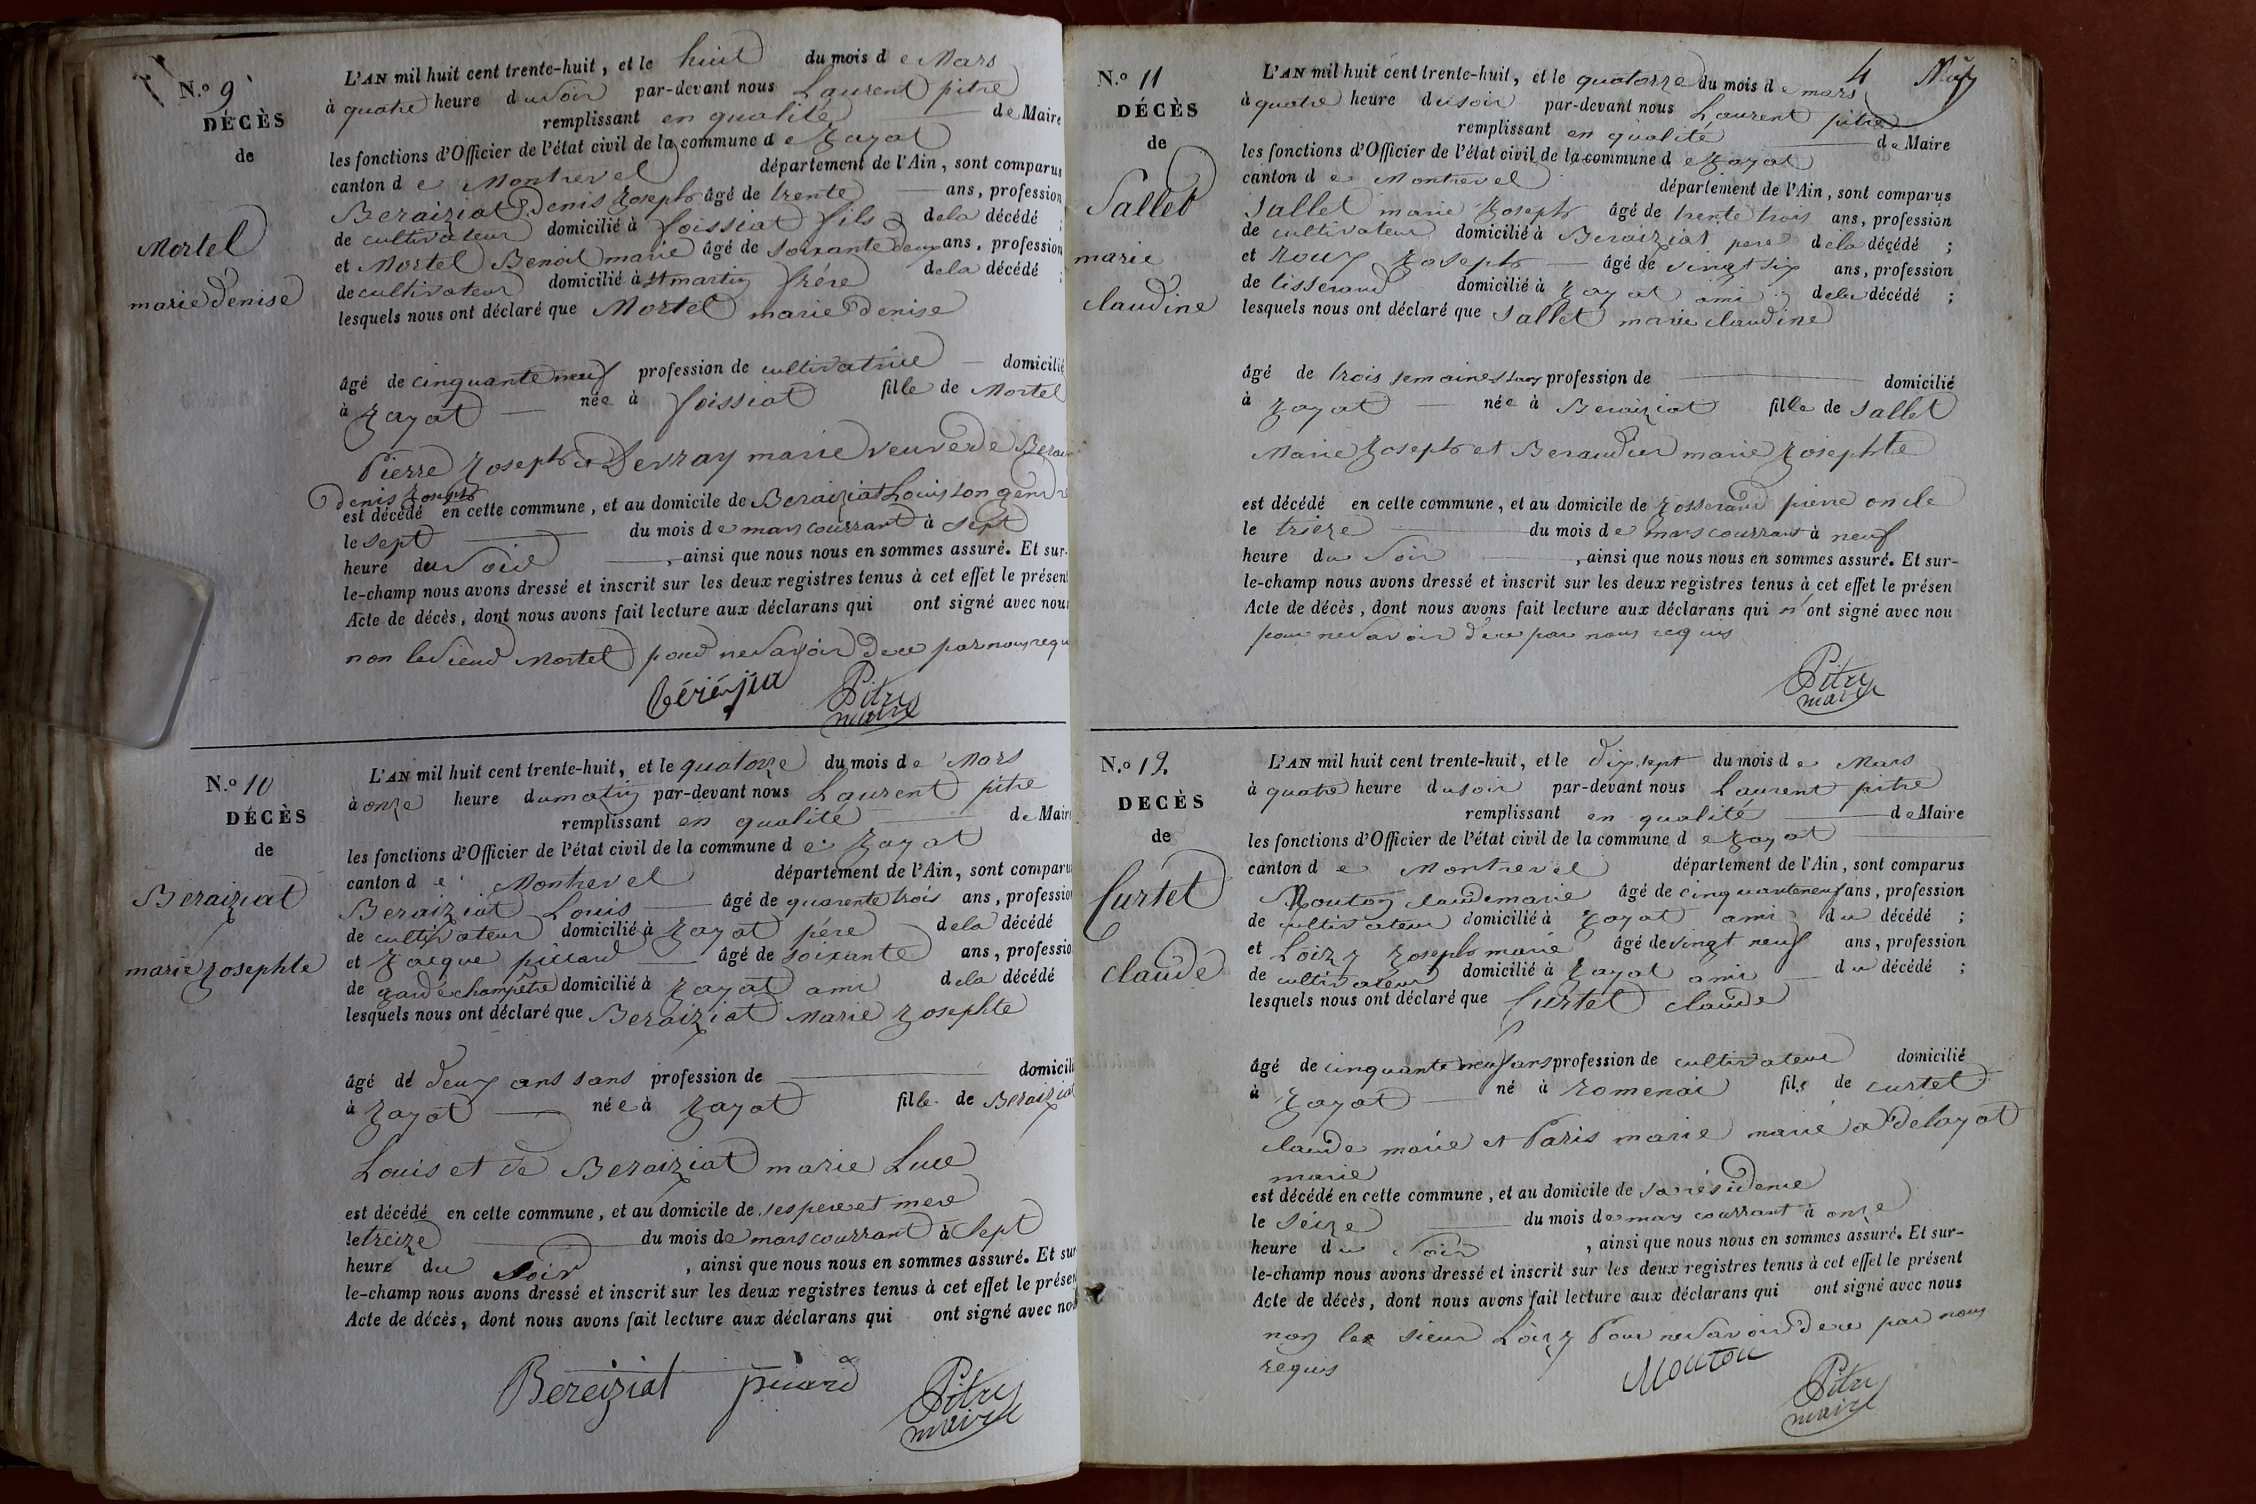 N.o 9
DÉCÈS
de
Mortel
marie denise
L'AN mil huit cent trente-huit, et le huit du mois de Mars
à quatre heure du soir par-devant nous Laurent pitre
remplissant en qualité de Maire
les fonctions d'Officier de l'état civil de la commune de Zayat
canton de Montrevel département de l'Ain, sont comparus
Beraiziat Denis Zoseph âgé de trente ans, profession
de cultivateur domicilié à foissiat fils dela décédé ;
et Mortel Benoit marie âgé de soixante deux ans, profession
de cultivateur domicilié à St martin frére dela décédé ;
lesquels nous ont déclaré que Mortel marie denise
âgé de cinquante neuf profession de cultivatrice domicilié
à Zayat née à foissiat fille de Mortel
Pierre Zoseph et Devray marie veuve de Berai
denis Zoseph
est décédé en cette commune, et au domicile de Beraiziat Louis son gendre
le sept du mois de mars courrant à sept
heure du soir, ainsi que nous nous en sommes assuré. Et sur-
le-champ nous avons dressé et inscrit sur les deux registres tenus à cet effet le présent
Acte de décès, dont nous avons fait lecture aux déclarans qui ont signé avec nous
non le sieur Mortel pour ne savoir de ce par nous requ
Pitre
maire
N.o 10
DÉCÈS
de
Beraiziat
marie Zosephte
L'AN mil huit cent trente-huit, et le quatorze du mois de Mars
à onze heure du matin par-devant nous Laurent pitre
remplissant en qualité de Maire
les fonctions d'Officier de l'état civil de la commune de Zayat
canton de Montrevel département de l'Ain, sont comparu
Beraiziat Louis âgé de quarente trois ans, professio
de cultivateur domicilié à Zayat pére dela décédé
et Zacque piccard âgé de soixante ans, professio
de garde champêtre domicilié à Zayat ami dela décédé
lesquels nous ont déclaré que Beraiziat Marie Zosephte
âgé de deux ans sans profession de domicili
à Zayat née à Zayat fille de Beraiziat
Louis et de Beraiziat marie Luce
est décédé en cette commune, et au domicile de ses pere et mere
le treize du mois de mars courrant à sept
heure du soir, ainsi que nous nous en sommes assuré. Et sur
le-champ nous avons dressé et inscrit sur les deux registres tenus à cet effet le présen
Acte de décès, dont nous avons fait lecture aux déclarans qui ont signé avec nou
Bereiziat picard Pitre
maire
4
N.o 11
DÉCÈS
de
Sallet
marie
claudine
L'AN mil huit cent trente-huit, et le quatorze du mois de mars
à quatre heure du soir par-devant nous Laurent pitre
remplissant en qualité de Maire
les fonctions d'Officier de l'état civil de la commune de Zayat
canton de Montrevel département de l'Ain, sont comparus
Sallet marie Zoseph âgé de trente trois ans, profession
de cultivateur domicilié à Beraiziat pere dela décédé ;
et Roux Zoseph âgé de vingt six ans, profession
de tisserand domicilié à Zayat ami dela décédé ;
lesquels nous ont déclaré que Sallet marie claudine
âgé de trois semaines sans profession de domicilié
à Zayat née à Beraiziat fille de Sallet
Marie Zoseph et Beraudier marie Zosephte
est décédé en cette commune, et au domicile de Zosserand pierre oncle
le trieze du mois de mars courrant à neuf
heure du soir, ainsi que nous nous en sommes assuré. Et sur-
le-champ nous avons dressé et inscrit sur les deux registres tenus à cet effet le présen
Acte de décès, dont nous avons fait lecture aux déclarans qui n'ont signé avec nou
pour ne savoir de ce par nous requis
Pitre
maire
N.o 12.
DECÈS
de
Curtet
claude
L'AN mil huit cent trente-huit, et le dix sept du mois de Mars
à quatre heure du soir par-devant nous Laurent pitre
remplissant en qualité de Maire
les fonctions d'Officier de l'état civil de la commune de Zayat
canton de Montrevel département de l'Ain, sont comparus
Mouton claude marie âgé de cinquante neuf ans, profession
de cultivateur domicilié à Zayat ami du décédé ;
et Loizy Zoseph marie âgé de vingt neuf ans, profession
de cultivateur domicilié à Zayat ami du décédé ;
lesquels nous ont déclaré que Curtet claude
âgé de cinquante neuf ans profession de cultivateur domicilié
à Zayat né à Romenai fils de curtet
claude marie et Paris marie marié à delayat
marie
est décédé en cette commune, et au domicile de sa résidence
le seize du mois de mars courrant à onze
heure du soir, ainsi que nous nous en sommes assuré. Et sur-
le-champ nous avons dressé et inscrit sur les deux registres tenus à cet effet le présent
Acte de décès, dont nous avons fait lecture aux déclarans qui ont signé avec nous
non le sieur Loizy Pour ne savoir de ce par nous
requis
Mouton Pitre
maire